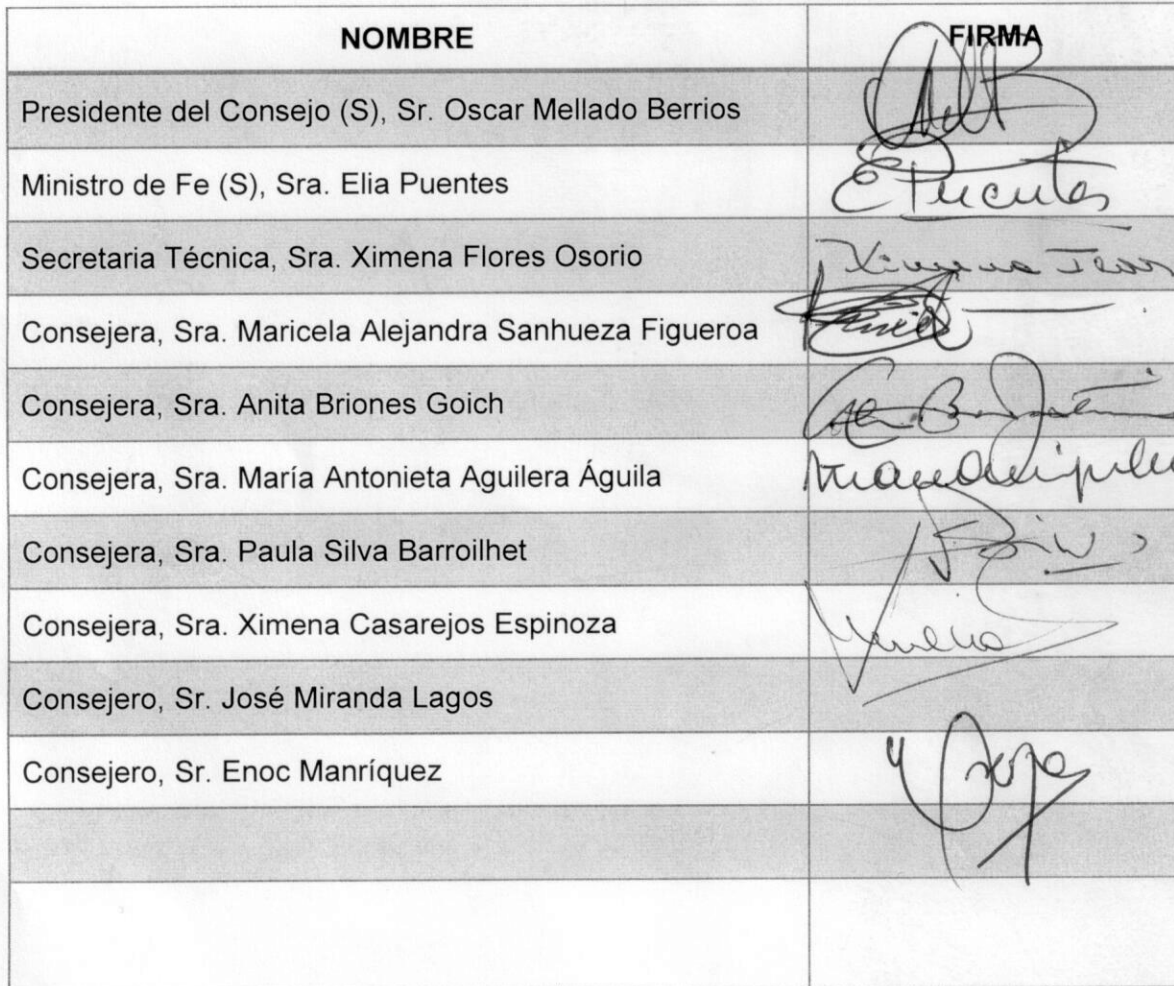 NOMBRE FIRMA
Presidente del Consejo (S), Sr. Oscar Mellado Berrios
Ministro de Fe (S), Sra. Elia Puentes E Puentes
Secretaria Técnica, Sra. Ximena Flores Osorio Ximena
Consejera, Sra. Maricela Alejandra Sanhueza Figueroa
Consejera, Sra. Anita Briones Goich
Consejera, Sra. María Antonieta Aguilera Águila
Consejera, Sra. Paula Silva Barroilhet
Consejera, Sra. Ximena Casarejos Espinoza
Consejero, Sr. José Miranda Lagos
Consejero, Sr. Enoc Manríquez